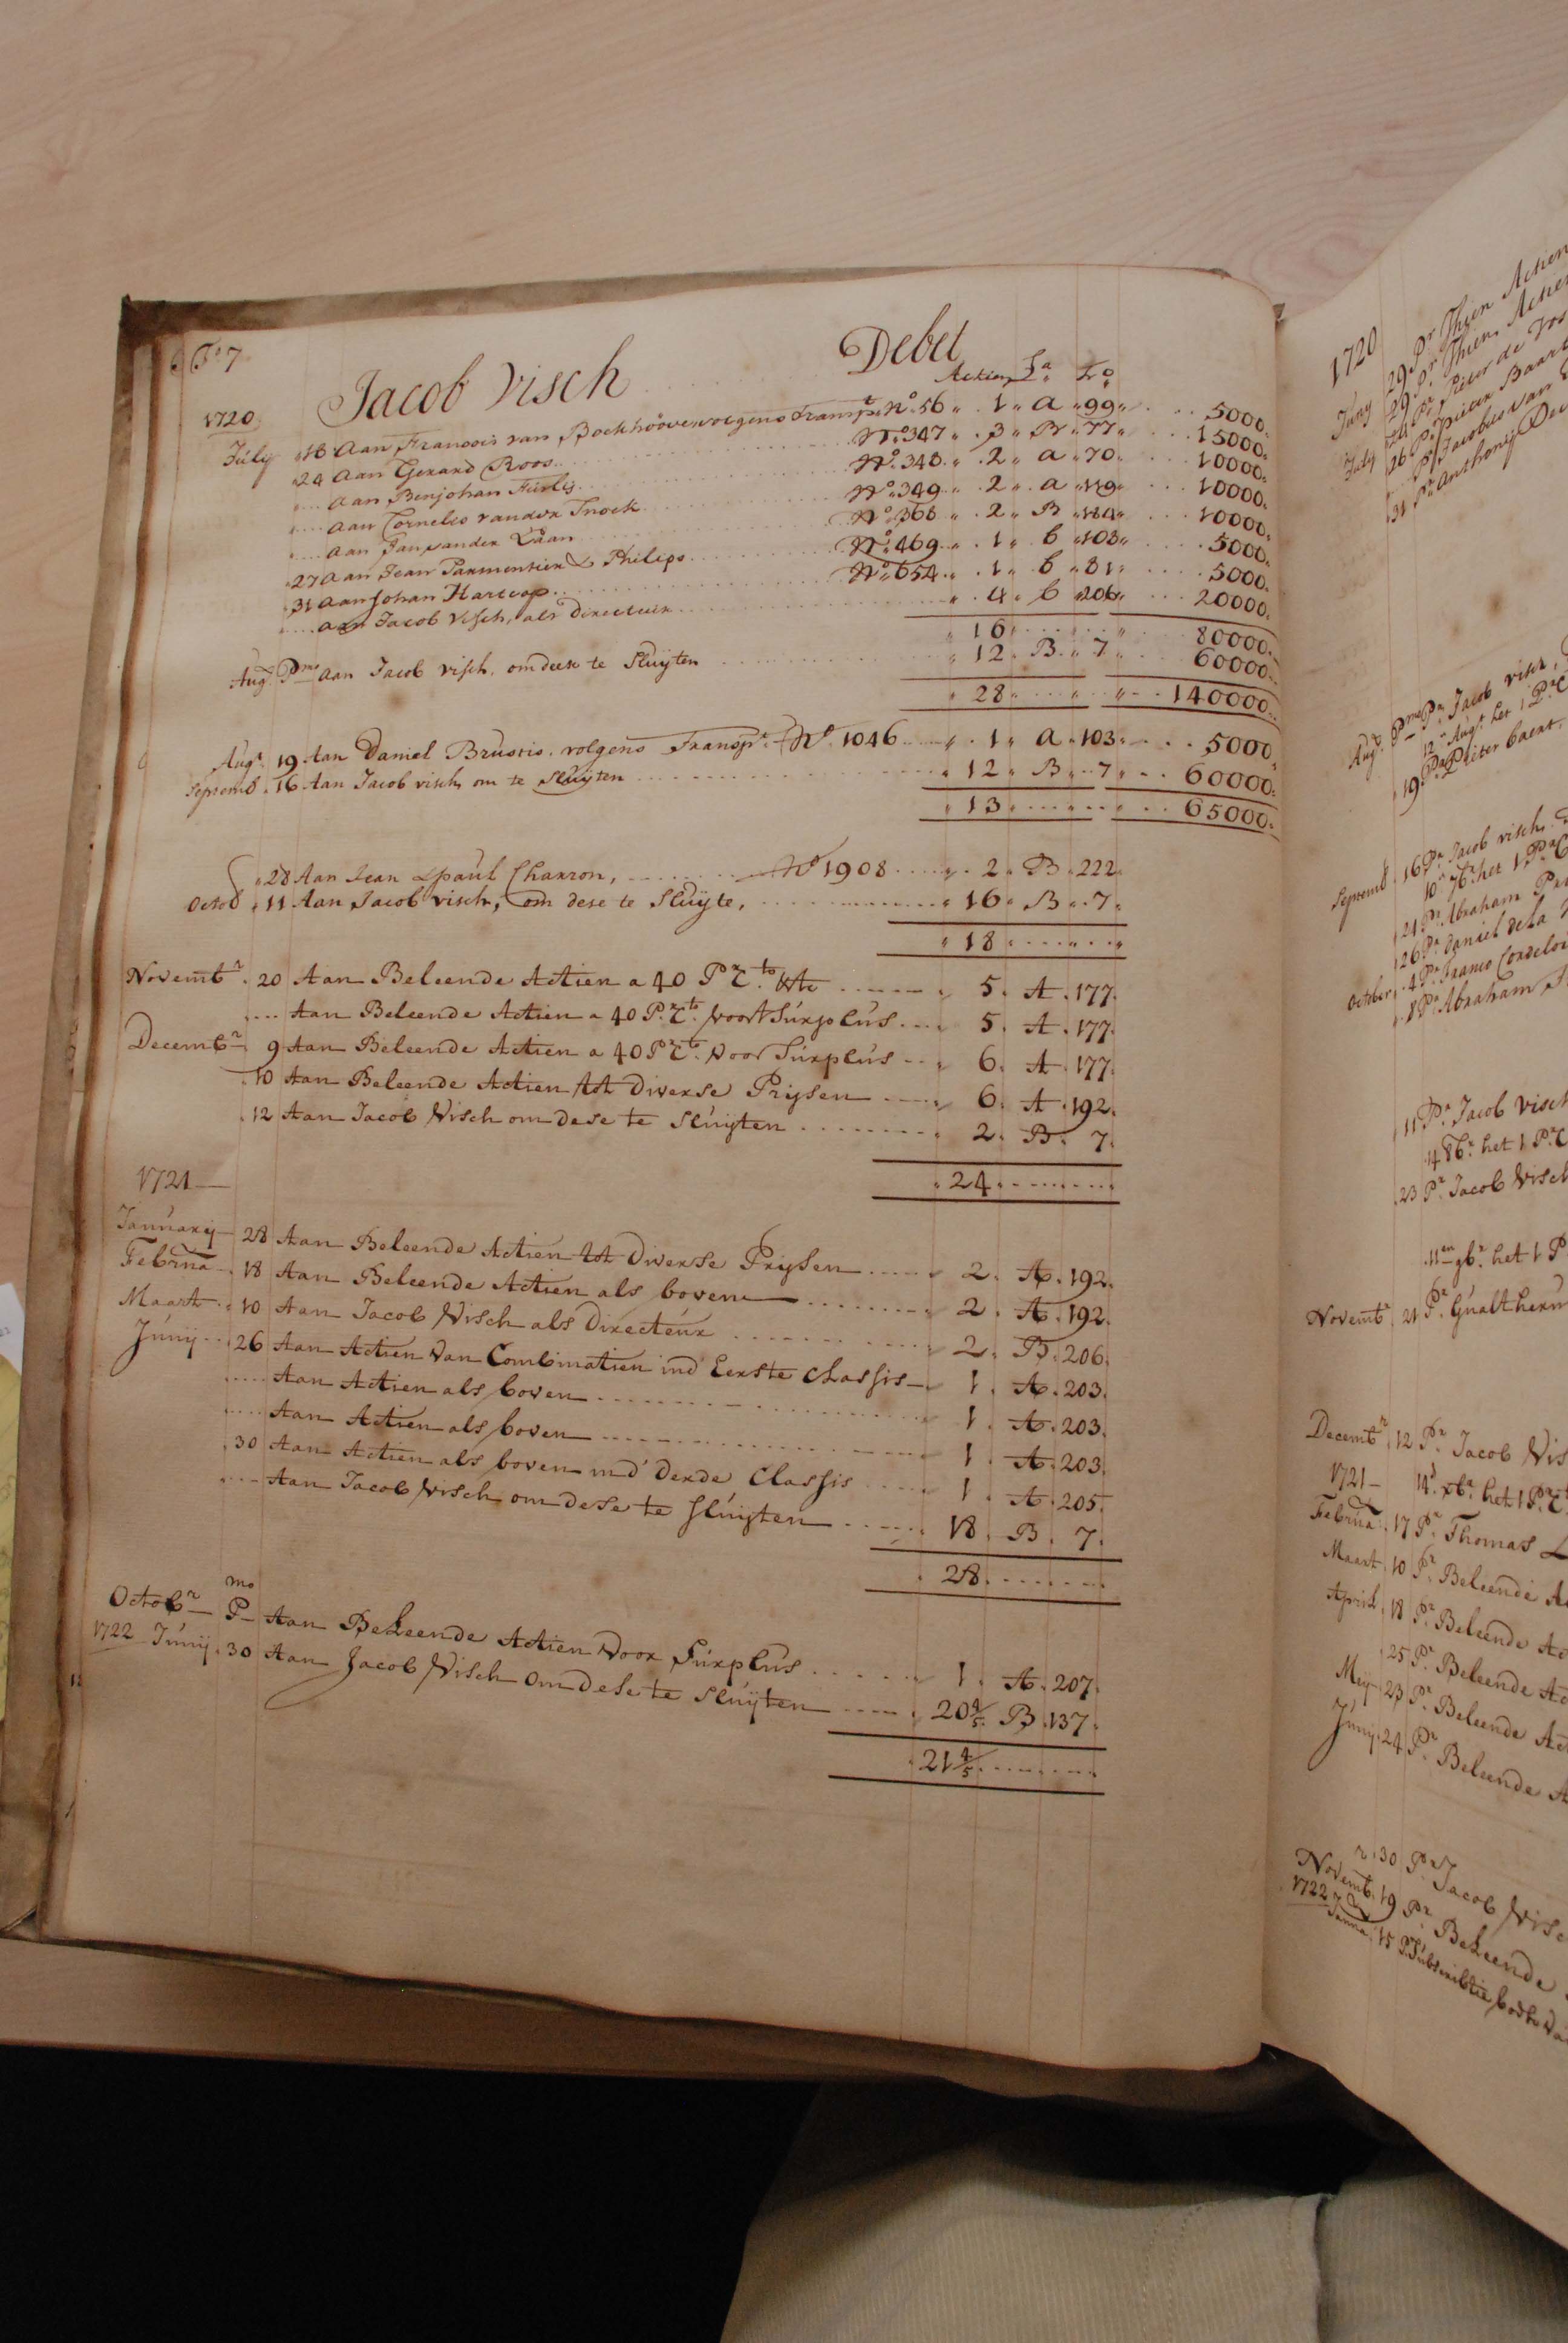 Fo 7
Jacob Visch Debet
Actien La Fo
1720
July 18 Aan Francois van Bockhooven volgens Transpt No 56 1 A 99 5000
24 Aan Gerard Roos No 347 3 B 77 15000
Aan Benjohan Furly No 348 2 a 70 10000
Aan Cornelis vander Snoek No 349 2 a 119 10000
Aan Jan vander Laan No 368 2 B 184 10000
27 Aan Jean Parmentier & Philips No 469 1 b 103 5000
31 Aan Johan Hartcop No 654 1 b 81 5000
Aan Jacob Visch, als Directeur 4 b 206 20000
16 80000
Aug. Pmo Aan Jacob Visch, om deese te Sluyten 12 B 7 60000
28 140000
Augt 19 Aan Daniel Brustis. volgens Transpt No 1046 1 A 103 5000
Septemb 16 Aan Jacob visch om te Sluyten 12 B 7 60000
13 65000
28 Aan Jean & paul Charron, No 1908 2 B 222
Octob 11 Aan Jacob visch, om dese te Sluyte, 16 B 7
18
Novembr 20 Aan Beleende Actien a 40 Pr Cto 5 A 177
Aan Beleende Actien a 40 Pr Cto voor Surplus 5 A 177
Decembr 9 Aan Beleende Actien a 40 Pr Cto voor Surplus 6 A 177
10 Aan Beleende Actien tot Diverse Prysen 6 A 192
12 Aan Jacob Visch om dese te sluyten 2 B 7
24
1721
January 28 Aan Beleende Actien tot Diverse Prysen 2 A 192
Februa 18 Aan Beleende Actien als boven 2 A 192
Maart 10 Aan Jacob Visch als Directeur 2 B 206
Junij 26 Aan Actien van Combinatien ind Eerste Classis 1 A 203
Aan Actien als boven 1 A 203
Aan Actien als boven 1 A 203
30 Aan Actien als boven ind' derde Classis 1 A 205
Aan Jacob Visch om dese te sluyten 18 B 7
28
Octobr Pmo Aan Beleende Actien voor Surplus 1 A 207
1722 Junij 30 Aan Jacob Visch om dese te sluyten 20 4/5 B 137
21 4/5
1720
Juny 29 Pr Thien Actien
29 Pr Thien Actien
July Pr Pieter de Vos
26 Pr Pieter Baart
Pr Jacobus van
31 Pr Anthony
Aug. Pmo Pr Jacob visch,
12 Augt het 1 Pr C
19 Pr Pieter baert,
Septemb 16 Pr Jacob visch,
10 7br het 1 Pr C
21 Pr Abraham
26 Pr Daniel dela
October 4 Pr Franco Cordelois
8 Pr Abraham
11 Pr Jacob Visch
14 8br het 1 Pr C
23 Pr Jacob Visch
11en 9br het 1 P
Novembr 21 Pr Gualtheru
Decembr 12 Pr Jacob Vis
1721 14 xbr het 1 Pr Ct
Februa 17 Pr Thomas L
Maart 10 Pr Beleende A
April 18 Pr Beleende Ac
25 Pr Beleende Ac
Mey 23 Pr Beleende Act
Junij 24 Pr Beleende A
30 Pr Jacob Visc
Novembr 19 Pr Beleende
1722 Janua 15 Pr Subscribtie